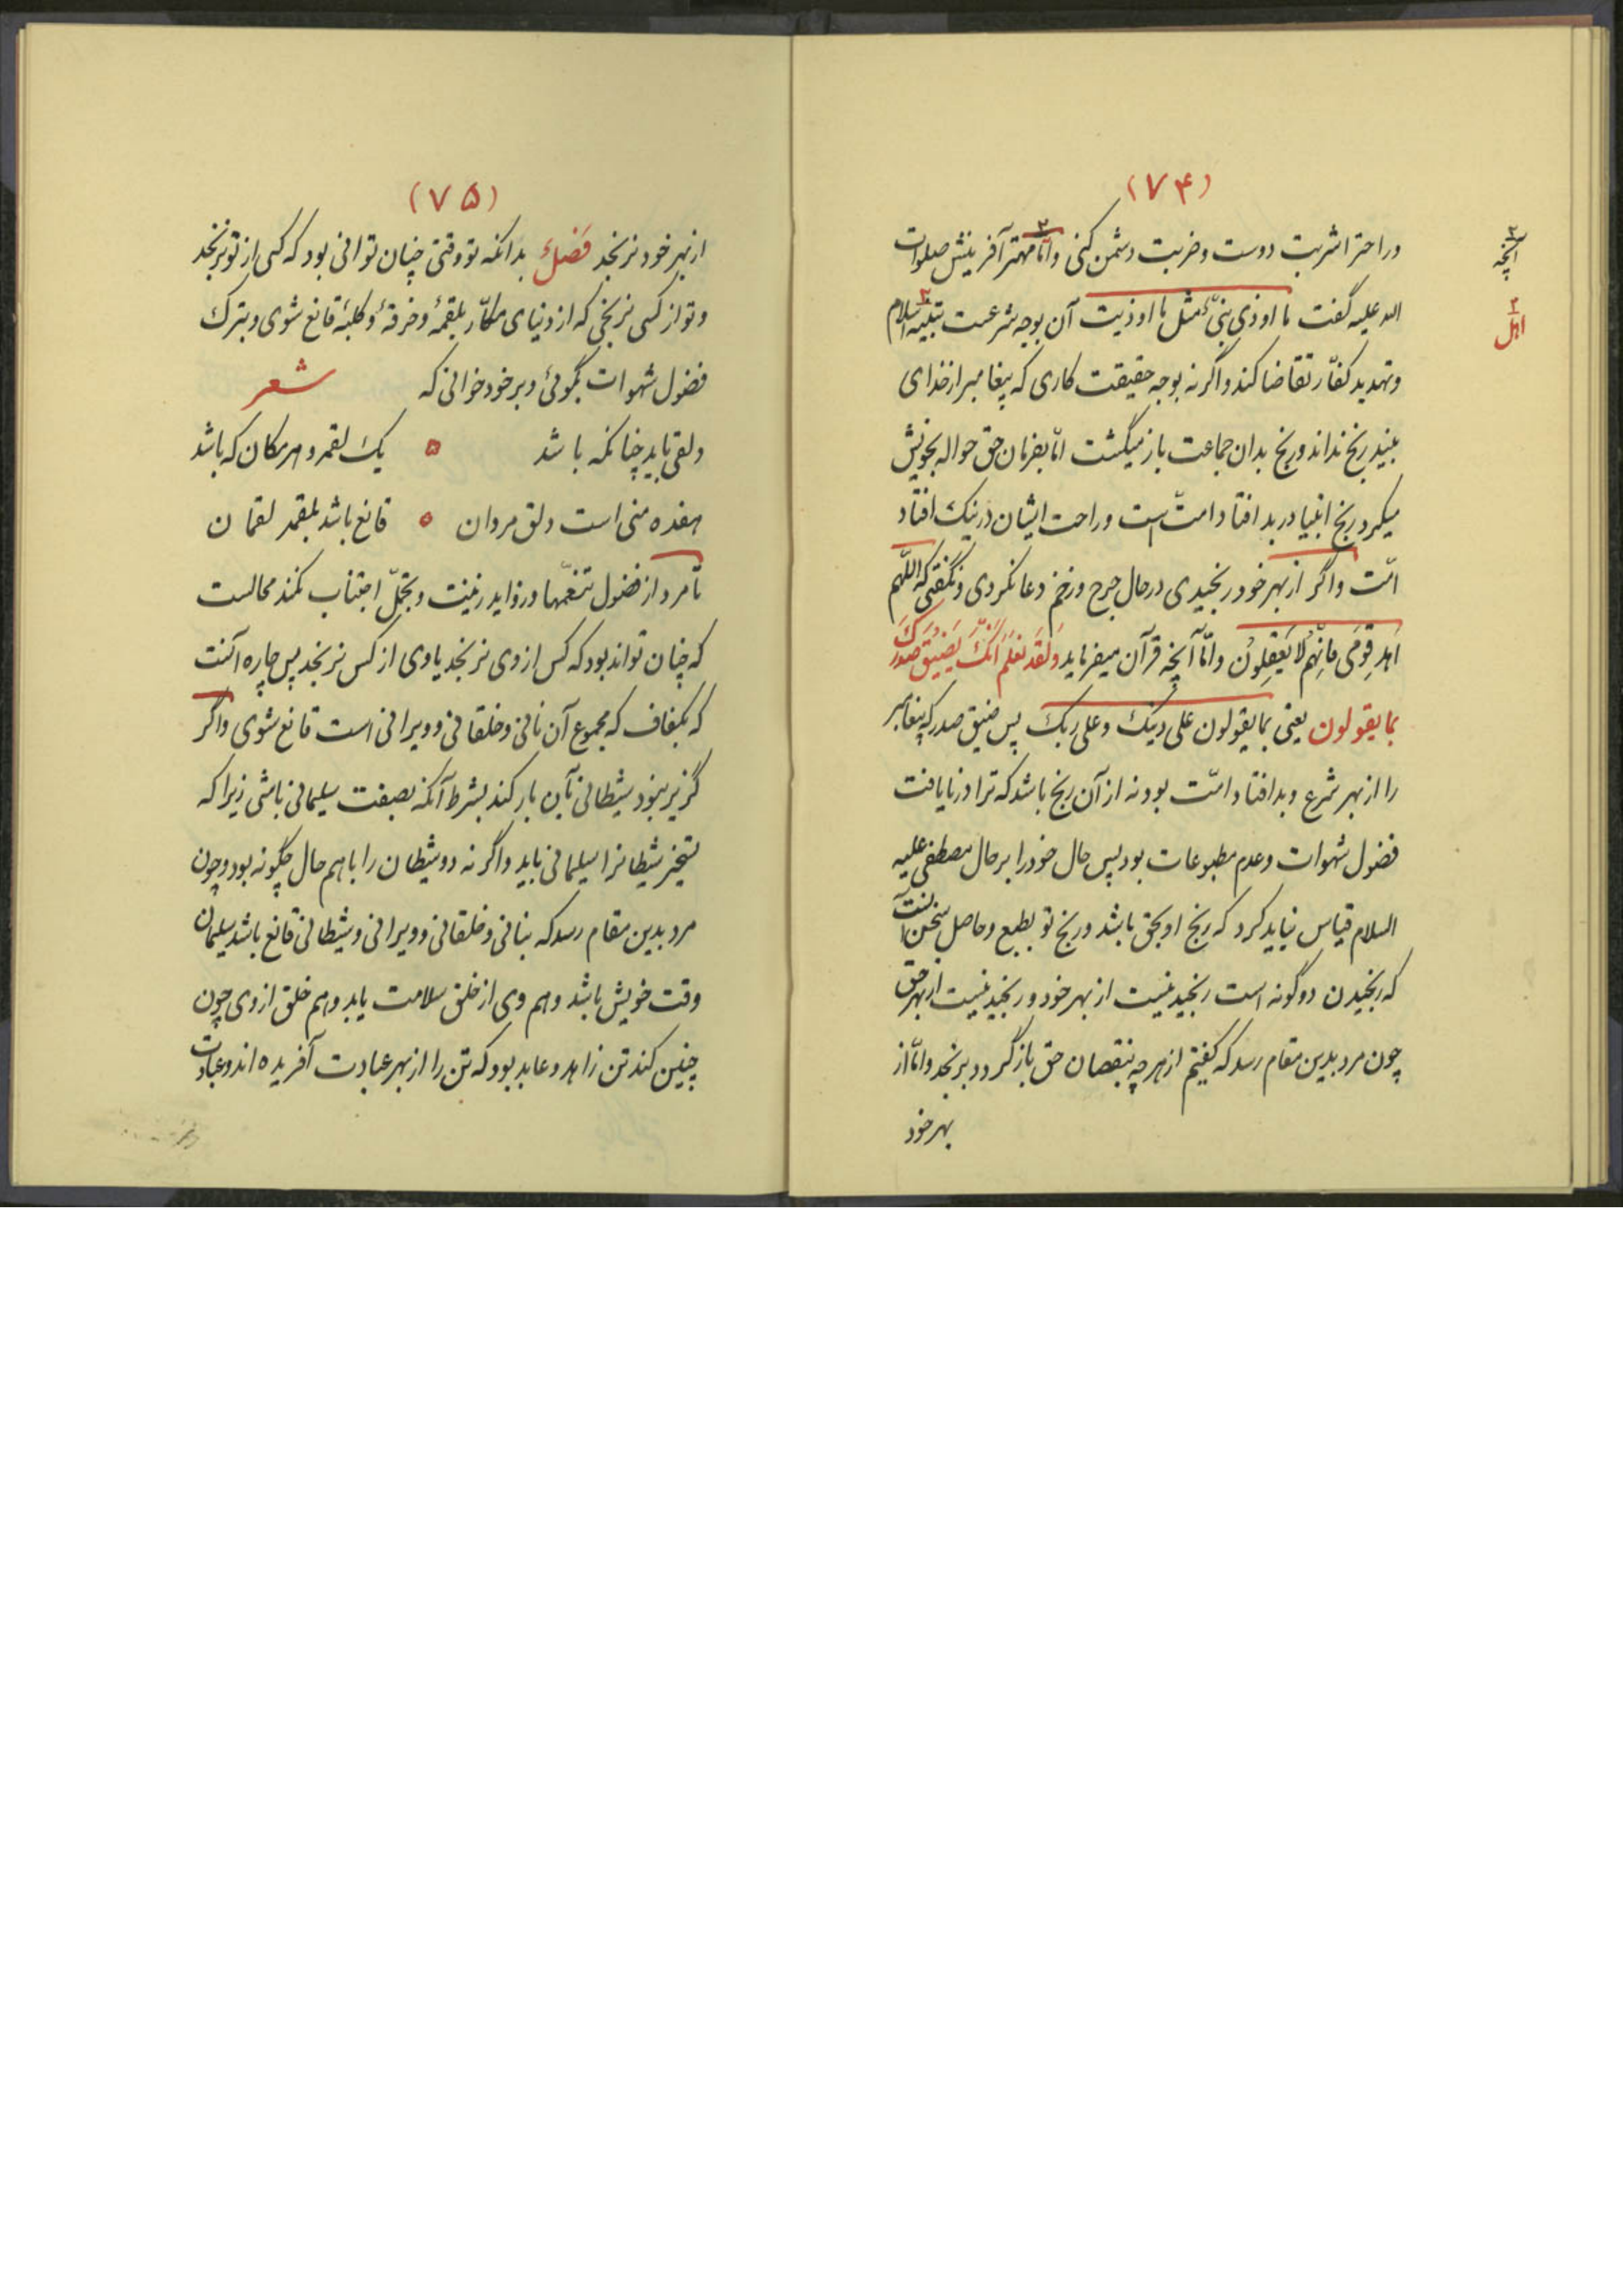 (۷۴)
وراحترا شربت دوست وضربت دشمن کنی وامّا مهتر آفرینش صلوات
آنچه
الله علیه گفت ما اوذی نبیّ مثل ما اوذیت آن بوجه شرعست تنبیه اسلام
اهل
وتهدید کفّار تقاضا کند واگر نه بوجه حقیقت کاری که پیغامبر از خدای
بیند رنج نداند ورنج بدان جماعت باز میگشت امّا بفرمان حق حواله بخویش
میکرد رنج انبیا در بد افتاد امتّ است وراحت ایشان در نیک افتاد
امّت واگر از بهر خود رنجیدی در حال جرح وزخم دعا نکردی ونگفتی که اللّهم
اهد قومی فانّهم لا یعقلون وامّا آنچه قرآن میفرماید ولقد نعلم انّک یضیق صدرک
بما یقولون یعنی بما یقولون علی دینک وعلی ربک پس ضیق صدر که پیغامبر
را از بهر شرع وبد افتاد امّت بود نه از آن رنج باشد که ترا در نایافت
فضول شهوات وعدم مطبوعات بود پس حال خود را بر حال مصطفی علیه
السلام قیاس نباید کرد که رنج او بحق باشد ورنج تو بطبع وحاصل سخن آنست
که رنجیدن دو گونه است رنجیدنیست از بهر خود ورنجیدنیست از بهر حق
چون مرد بدین مقام رسد که گفتیم از هر چه بنقصان حق باز گردد برنجد وامّا از
بهر خود
(۷۵)
از بهر خود نرنجد فصل بدانکه تو وقتی چنان توانی بود که کسی از تو نرنجد
وتو از کسی نرنجی که از دنیای مکّار بلقمهٔ وخرقهٔ وکلبهٔ قانع شوی وبترک
فضول شهوات بگوئی وبر خود خوانی که شعر
دلقی باید چنانکه باشد ه یک لقمه وهر مکان که باشد
هفده منی است دلق مردان ه قانع باشد بلقمه لقمان
تا مرد از فضول تنعّمها وزواید زینت وتجمّل اجتناب نکند محالست
که چنان تواند بود که کس از وی نرنجد یا وی از کس نرنجد پس چاره آنست
که بکفاف که مجموع آن نانی وخلقانی وویرانی است قانع شوی واگر
گزیر نبود شیطانی بآن بار کند بشرط آنکه بصفت سلیمانی باشی زیرا که
تسخیر شیطانرا سلیمانی باید واگر نه دو شیطان را با هم حال چگونه بود وچون
مرد بدین مقام رسد که بنانی وخلقانی وویرانی وشیطانی قانع باشد سلیمان
وقت خویش باشد وهم وی از خلق سلامت یابد وهم خلق از وی چون
چنین کند تن زاهد وعابد بود که تن را از بهر عبادت آفریده اند وعبادت